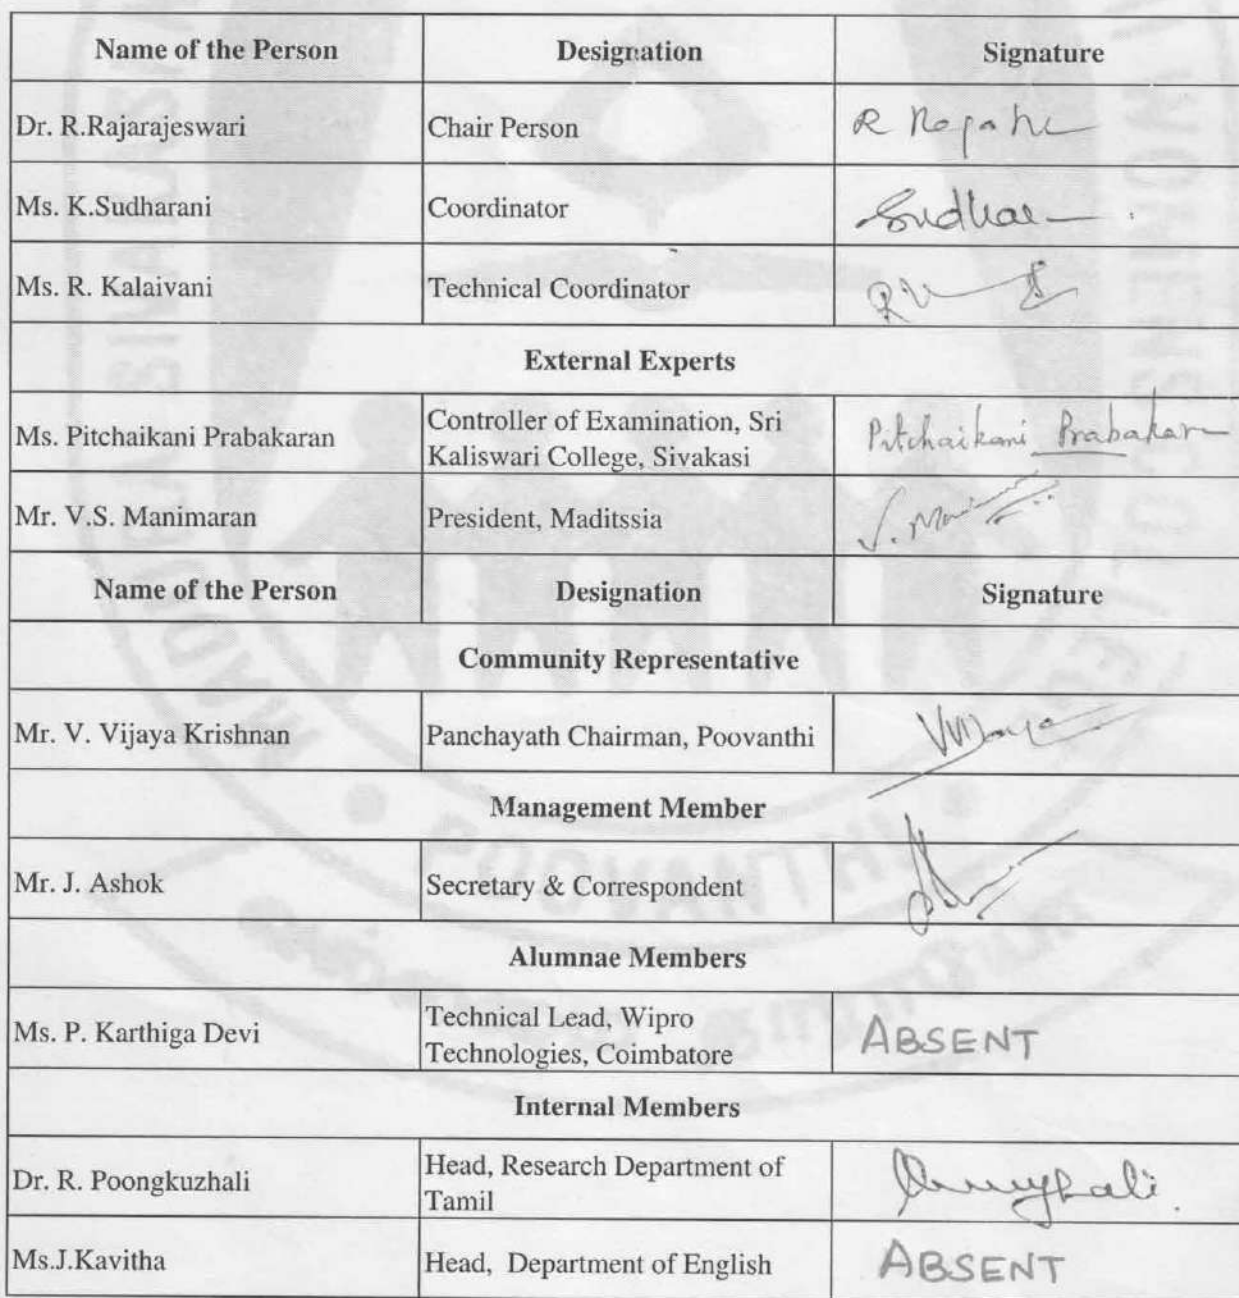 Name of the Person Designation Signature
Dr. R.Rajarajeswari Chair Person R
Ms. K.Sudharani Coordinator
Ms. R. Kalaivani Technical Coordinator
External Experts
Ms. Pitchaikani Prabakaran Controller of Examination, Sri Pitchaikani Prabakaran
Kaliswari College, Sivakasi
Mr. V.S. Manimaran President, Maditssia
Name of the Person Designation Signature
Community Representative
Mr. V. Vijaya Krishnan Panchayath Chairman, Poovanthi
Management Member
Mr. J. Ashok Secretary & Correspondent
Alumnae Members
Ms. P. Karthiga Devi Technical Lead, Wipro ABSENT
Technologies, Coimbatore
Internal Members
Dr. R. Poongkuzhali Head, Research Department of
Tamil
Ms.J.Kavitha Head, Department of English ABSENT